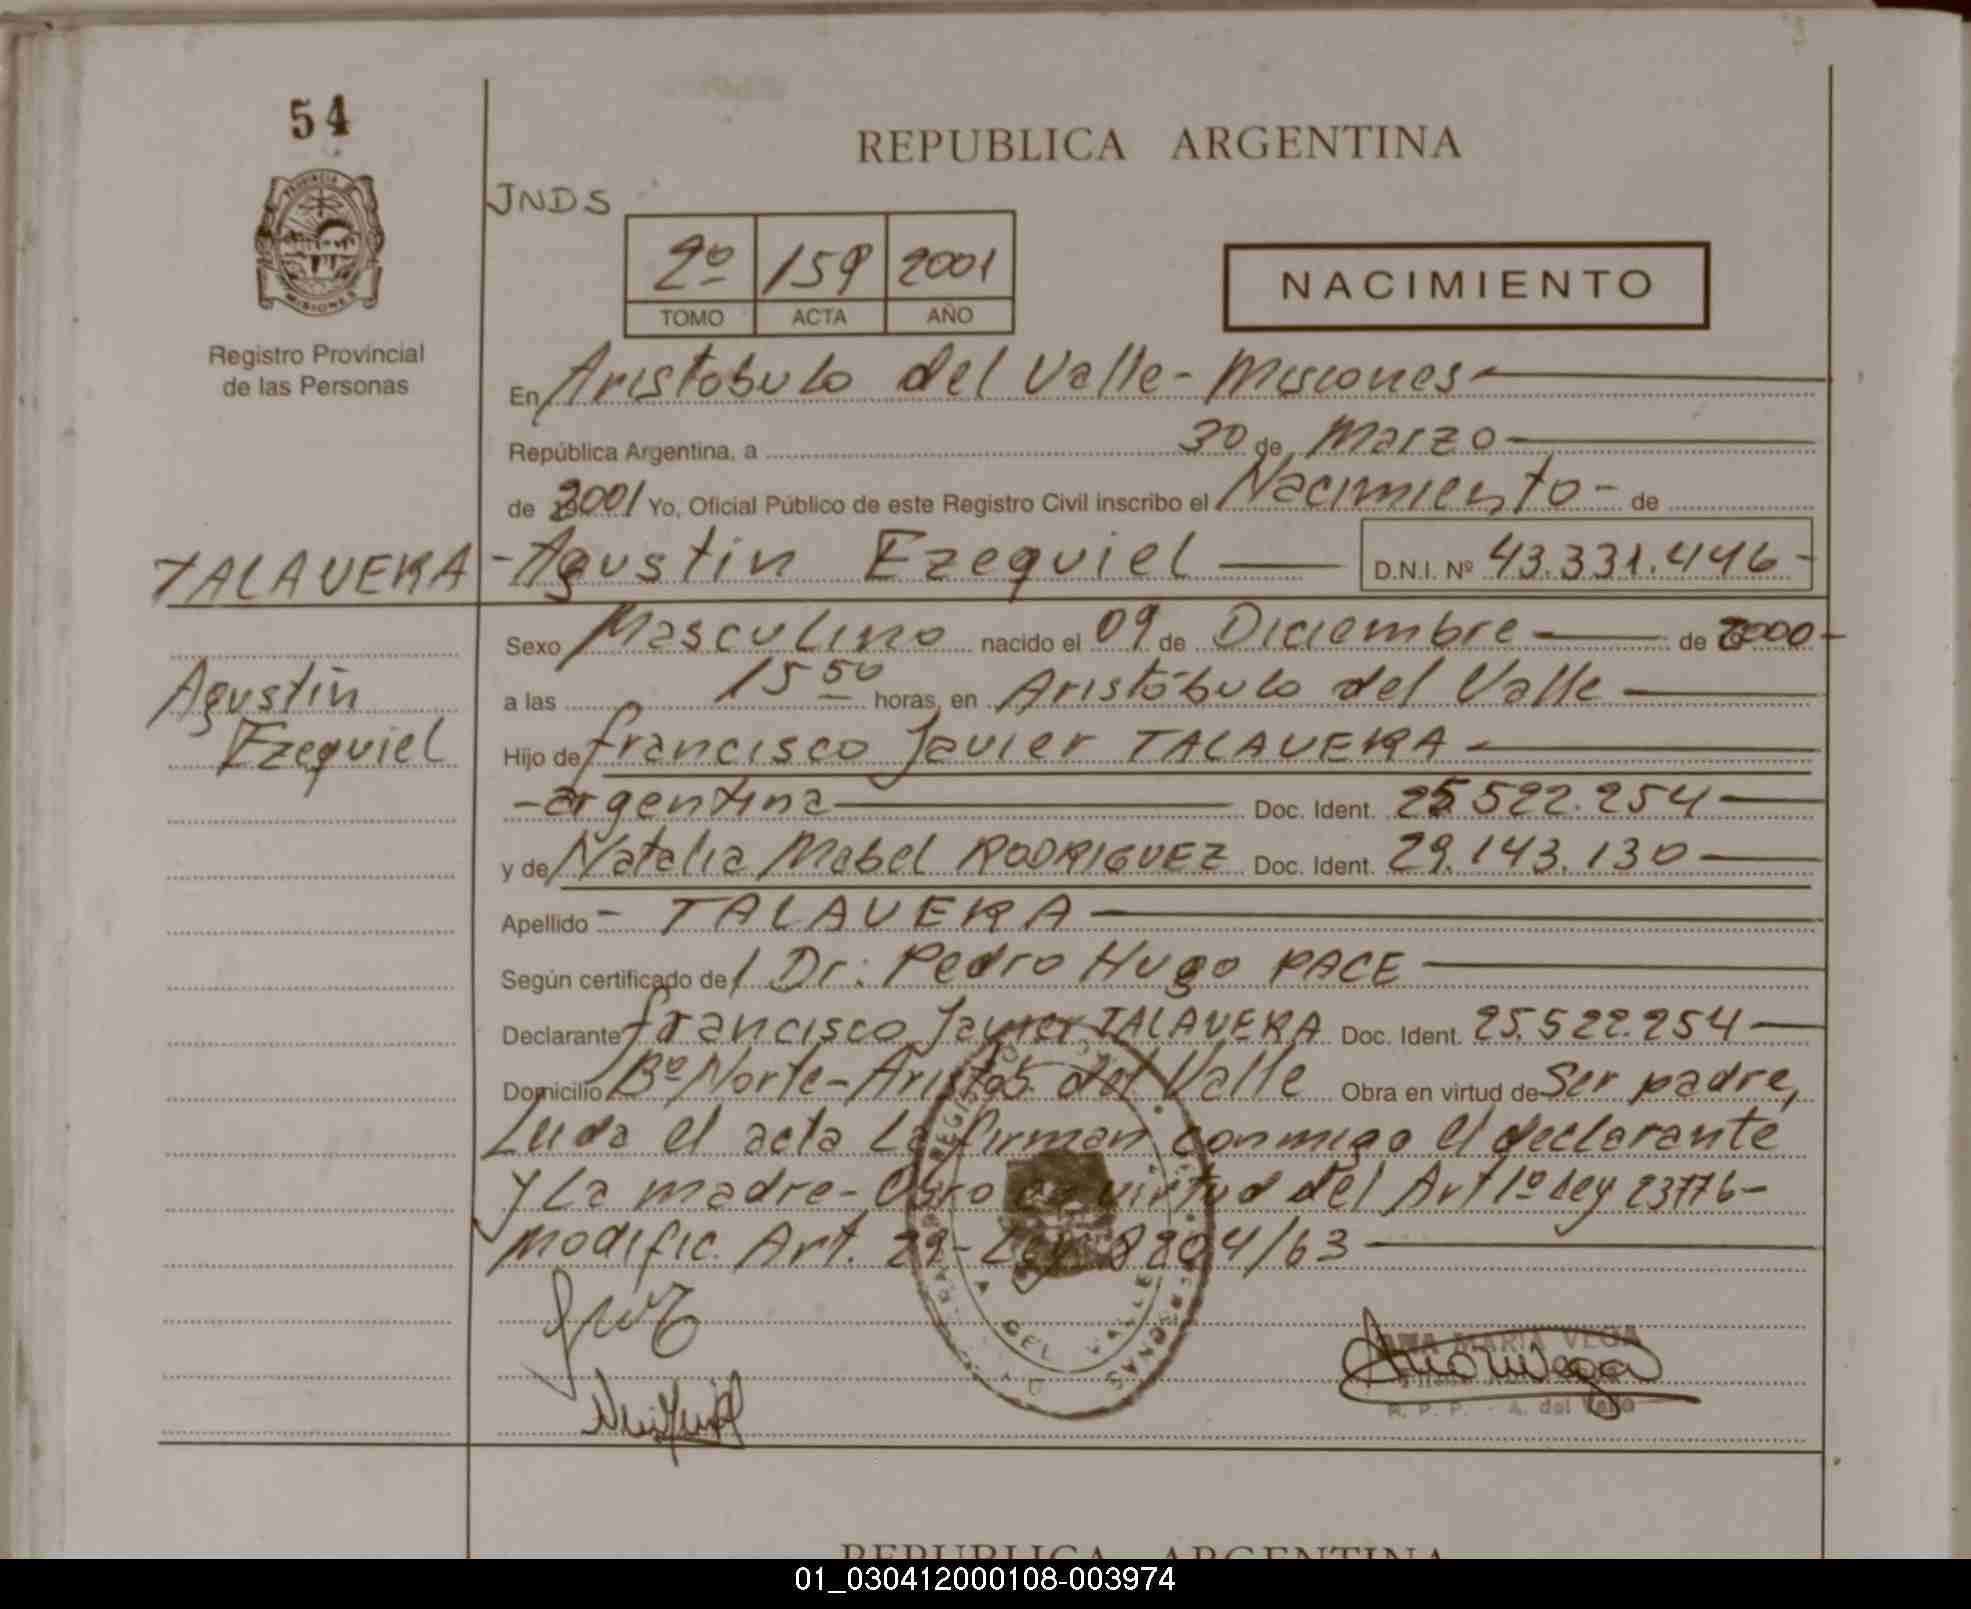 54
REPUBLICA ARGENTINA
JNDS
2º 159 2001
TOMO ACTA AÑO
NACIMIENTO
PROVINCIA DE MISIONES
Registro Provincial
de las Personas
En Aristobulo del Valle - Misiones
República Argentina, a 30 de Marzo
de 2001 Yo, Oficial Público de este Registro Civil inscribo el Nacimiento - de
TALAVERA - Agustin Ezequiel D.N.I. Nº 43.331.446-
Sexo Masculino nacido el 09 de Diciembre de 2000-
Agustin
Ezequiel
a las 15 50 horas, en Aristóbulo del Valle
Hijo de francisco Javier TALAVERA
- argentina Doc. Ident. 25.522.254
y de Natalia Mabel RODRIGUEZ Doc. Ident. 29.143.130
Apellido - TALAVERA
Según certificado de Dr: Pedro Hugo PACE
Declarante francisco Javier TALAVERA Doc. Ident. 25.522.254
Domicilio Bº Norte - Aristób. del Valle Obra en virtud de Ser padre,
Leída el acta La firman conmigo el declarante
y La madre - Obro en virtud del Art 1º Ley 23776-
modific. Art. 29 - Ley 8204/63
REGISTRO DEL VALLE PERSONAS
ANA MARIA VEGA
R. P. P. - A. del Valle
REPUBLICA ARGENTINA
01_030412000108-003974